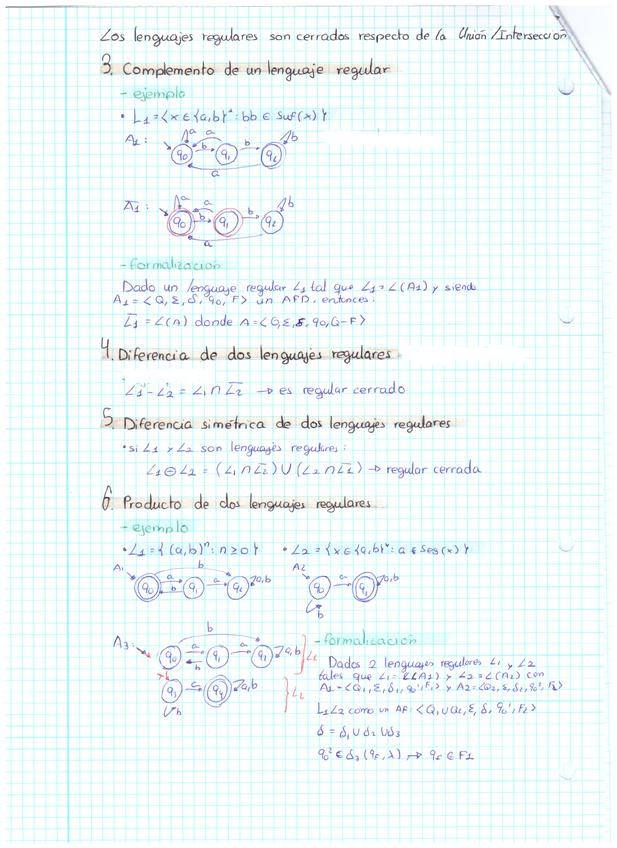 Los lenguajes regulares son cerrados respecto de la Unión/Intersección
3. Complemento de un lenguaje regular
- ejemplo
• L₁ = {x ∈ {a,b}* : bb ∈ Suf(x)}
A₁:
a a b
q₀ b q₁ b q₂
a
A̅₁:
a a b
q₀ b q₁ b q₂
a
- formalización
Dado un lenguaje regular L₁ tal que L₁ = L(A₁) y siendo
A₁ = <Q, Σ, δ, q₀, F> un AFD, entonces:
L̅₁ = L(A) donde A = <Q, Σ, δ, q₀, Q-F>
4. Diferencia de dos lenguajes regulares
L₁ - L₂ = L₁ ∩ L̅₂ → es regular cerrado
5. Diferencia simétrica de dos lenguajes regulares
• si L₁ y L₂ son lenguajes regulares:
L₁ ⊖ L₂ = (L₁ ∩ L̅₂) ∪ (L₂ ∩ L̅₁) → regular cerrada
6. Producto de dos lenguajes regulares
- ejemplo
• L₁ = {(a,b)ⁿ : n ≥ 0} • L₂ = {x ∈ {a,b}* : a ∈ Seg(x)}
A₁ b A₂
q₀ a q₁ a q₂ a,b q₀ a q₁ a,b
b b
A₃: b
q₀ a q₁ a q₁ a,b L₁
b
λ
q₁ a q₄ a,b L₂
b
- formalización
Dados 2 lenguajes regulares L₁ y L₂
tales que L₁ = L(A₁) y L₂ = L(A₂) con
A₁ = <Q₁, Σ, δ₁, q₀¹, F₁> y A₂ = <Q₂, Σ, δ₂, q₀², F₂>
L₁L₂ como un AF: <Q₁ ∪ Q₂, Σ, δ, q₀¹, F₂>
δ = δ₁ ∪ δ₂ ∪ δ₃
q₀² ∈ δ₃(qF, λ) → qF ∈ F₁